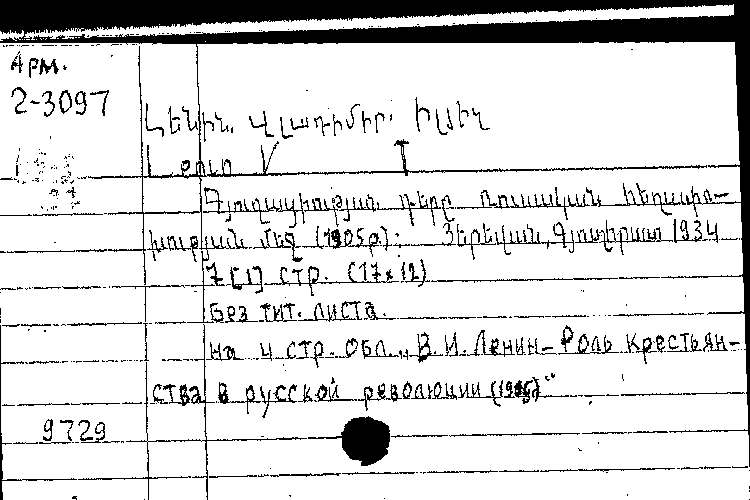 Арм.
2-3097
Լենին, Վլադիմիր Իլյիչ
Գյուղացիության դերը ռուսական հեղափո-
խության մեջ (1905թ): Յերեվան, Գյուղհրատ 1934
7 [1] стр. (17x12)
Без тит. листа.
на 4 стр. обл. „В. И. Ленин - Роль крестьян-
ства в русской революции (1905)“
9729